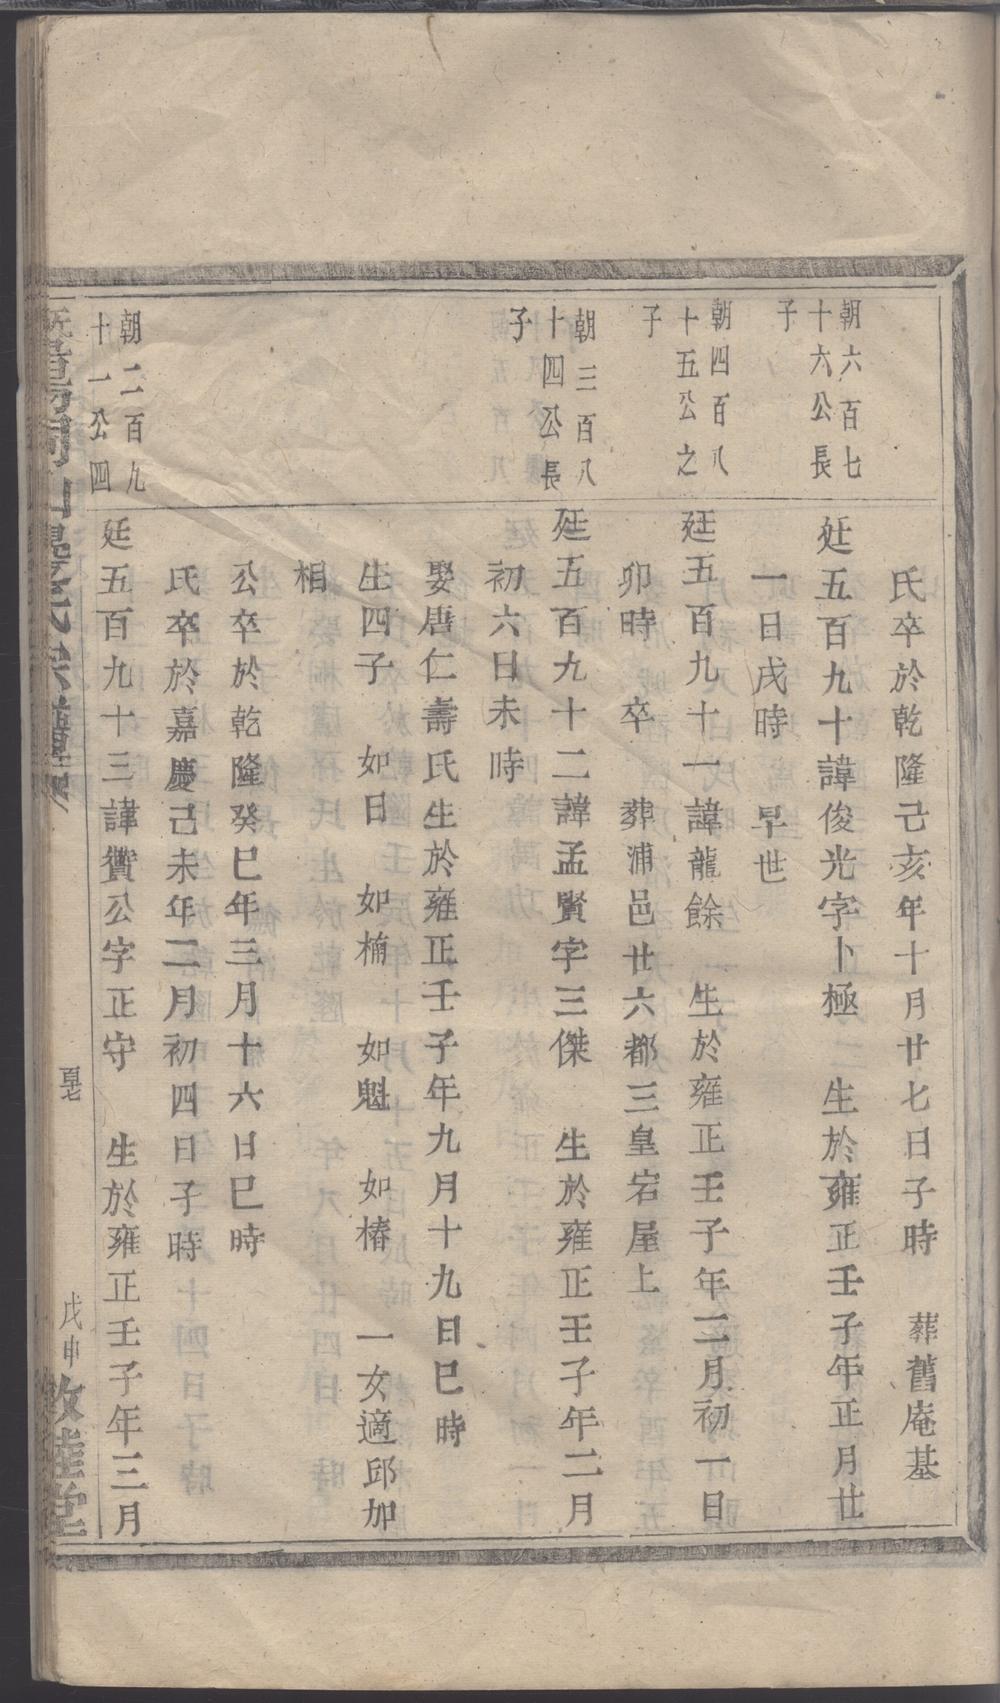 氏卒於乾隆己亥年十月廿七日子時　葬舊庵基
朝六百七
十六公長
子
廷五百九十諱俊光字卜極　生於雍正壬子年正月廿
一日戌時　早世
朝四百八
十五公之
子
廷五百九十一諱龍餘　生於雍正壬子年二月初一日
卯時　卒　葬浦邑廿六都三皇宕屋上
朝三百八
十四公長
子
廷五百九十二諱孟賢字三傑　生於雍正壬子年二月
初六日未時
娶唐仁壽氏生於雍正壬子年九月十九日巳時
生四子　如日　如楠　如魁　如椿　一女適邱加
相
公卒於乾隆癸巳年三月十六日巳時
氏卒於嘉慶己未年二月初四日子時
朝二百九
十一公四
廷五百九十三諱贊公字正守　生於雍正壬子年三月
氏宗譜
戊申
敦睦堂